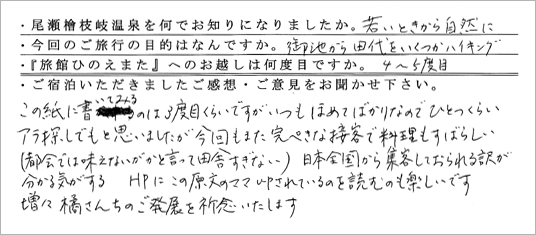 ・尾瀬檜枝岐温泉を何でお知りになりましたか。若いときから自然に
・今回のご旅行の目的はなんですか。御池から田代をいくつかハイキング
・『旅館ひのえまた』へのお越しは何度目ですか。4〜5度目
・ご宿泊いただきましたご感想・ご意見をお聞かせ下さい。
この紙に書いてみるのは3度目くらいですがいつもほめてばかりなのでひとつくらい
アラ探しでもと思いましたが今回もまた完ぺきな接客で料理もすばらしい
(都会では味えないがかと言って田舎すぎない) 日本全国から集客しておられる訳が
分かる気がする HPにこの原文のママUPされているのを読むのも楽しいです
増々橘さんちのご発展を祈念いたします